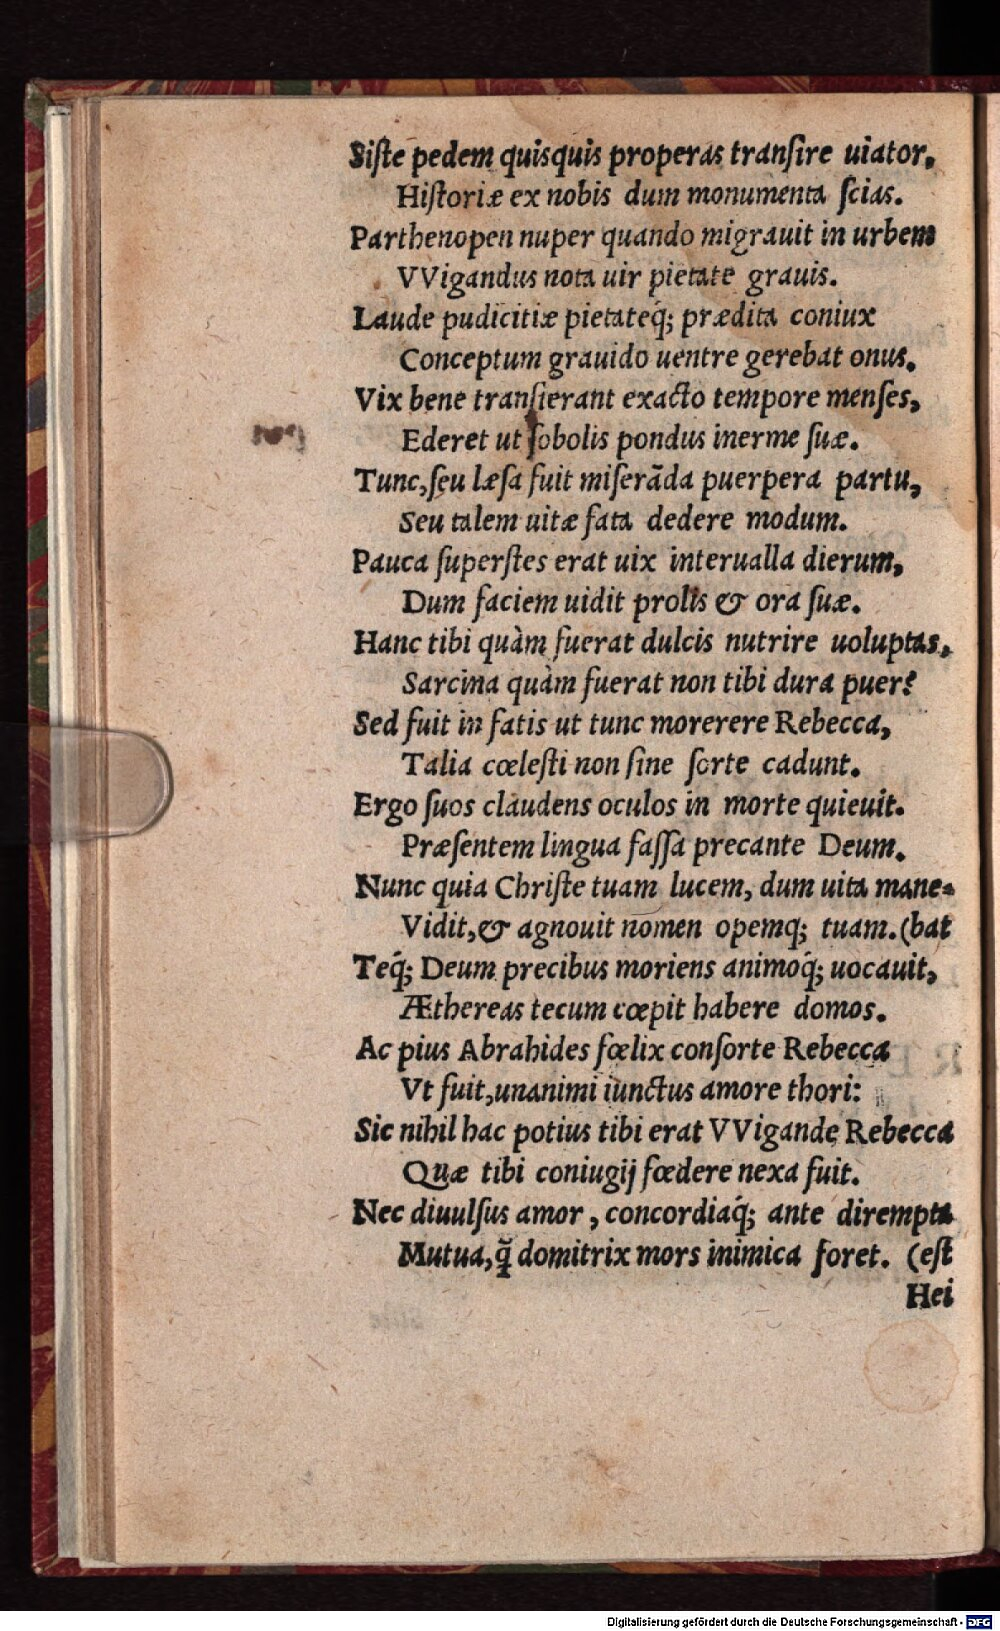 Siſte pedem quisquis properas tranſire uiator,
Hiſtoriæ ex nobis dum monumenta ſcias.
Parthenopen nuper quando migrauit in urbem
VVigandus nota uir pietate grauis.
Laude pudicitiæ pietateq́; prædita coniux
Conceptum grauido uentre gerebat onus.
Vix bene tranſierant exacto tempore menſes,
Ederet ut ſobolis pondus inerme ſuæ.
Tunc, ſeu læſa fuit miserãda puerpera partu,
Seu talem uitæ fata dedere modum.
Pauca ſuperſtes erat uix interualla dierum,
Dum faciem uidit prolis & ora ſuæ.
Hanc tibi quàm fuerat dulcis nutrire uoluptas,
Sarcina quàm fuerat non tibi dura puer?
Sed fuit in fatis ut tunc morerere Rebecca,
Talia cœleſti non ſine ſorte cadunt.
Ergo ſuos claudens oculos in morte quieuit.
Præſentem lingua faſſa precante Deum.
Nunc quia Chriſte tuam lucem, dum uita mane-
Vidit, & agnouit nomen opemq; tuam. (bat
Teq́; Deum precibus moriens animoq́; uocauit,
Æthereas tecum cœpit habere domos.
Ac pius Abrahides fœlix conſorte Rebecca
Vt fuit, unanimi iunctus amore thori:
Sic nihil hac potius tibi erat VVigande Rebecca
Quæ tibi coniugij fœdere nexa fuit.
Nec diuulſus amor, concordiaq́; ante dirempta
Mutua, q̃ domitrix mors inimica foret. (eſt
Hei
Digitalisierung gefördert durch die Deutsche Forschungsgemeinschaft - DFG